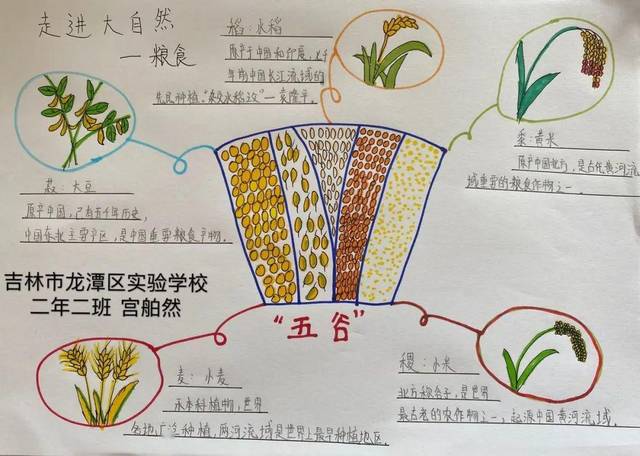 走进大自然
—粮食
稻：水稻
原产于中国和印度，七千
年前中国长江流域的
先民种植。
袁隆平。
黍：黄米
原产中国北方，是古代黄河流
域重要的粮食作物之一。
菽：大豆
原产中国，已有五千年历史，
中国东北主要产区，是中国重要粮食产物。
吉林市龙潭区实验学校
二年二班 宫舶然
"五谷"
麦：小麦
禾本科植物，世界
各地广泛种植，两河流域是世界上最早种植地区。
稷：小米
北方称谷子，是世界
最古老的农作物之一，起源中国黄河流域。